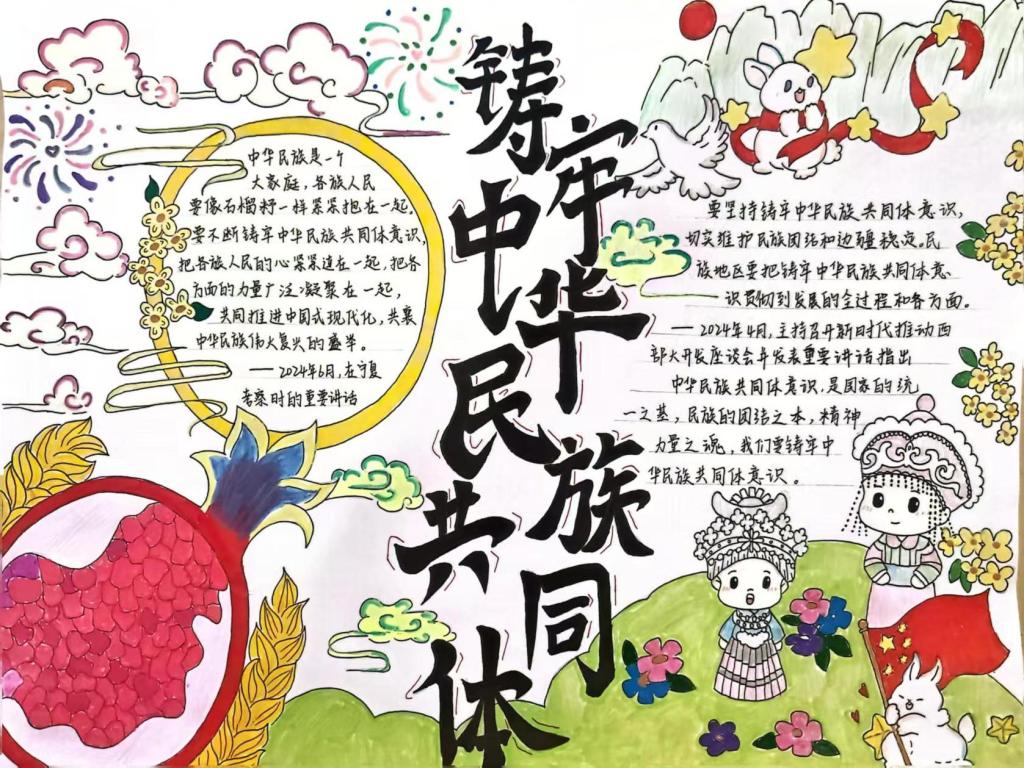 铸牢中华民族共同体
中华民族是一个
大家庭，各族人民
要像石榴籽一样紧紧抱在一起，
要不断铸牢中华民族共同体意识，
把各族人民的心紧紧连在一起，把各
方面的力量广泛凝聚在一起，
共同推进中国式现代化，共襄
中华民族伟大复兴的盛举。
——2024年6月，在宁夏
考察时的重要讲话
要坚持铸牢中华民族共同体意识，
切实维护民族团结和边疆稳定。民
族地区要把铸牢中华民族共同体意
识贯彻到发展的全过程和各方面。
——2024年4月，主持召开新时代推动西
部大开发座谈会并发表重要讲话指出
中华民族共同体意识，是国家的统
一之基，民族的团结之本，精神
力量之魂，我们要铸牢中
华民族共同体意识。